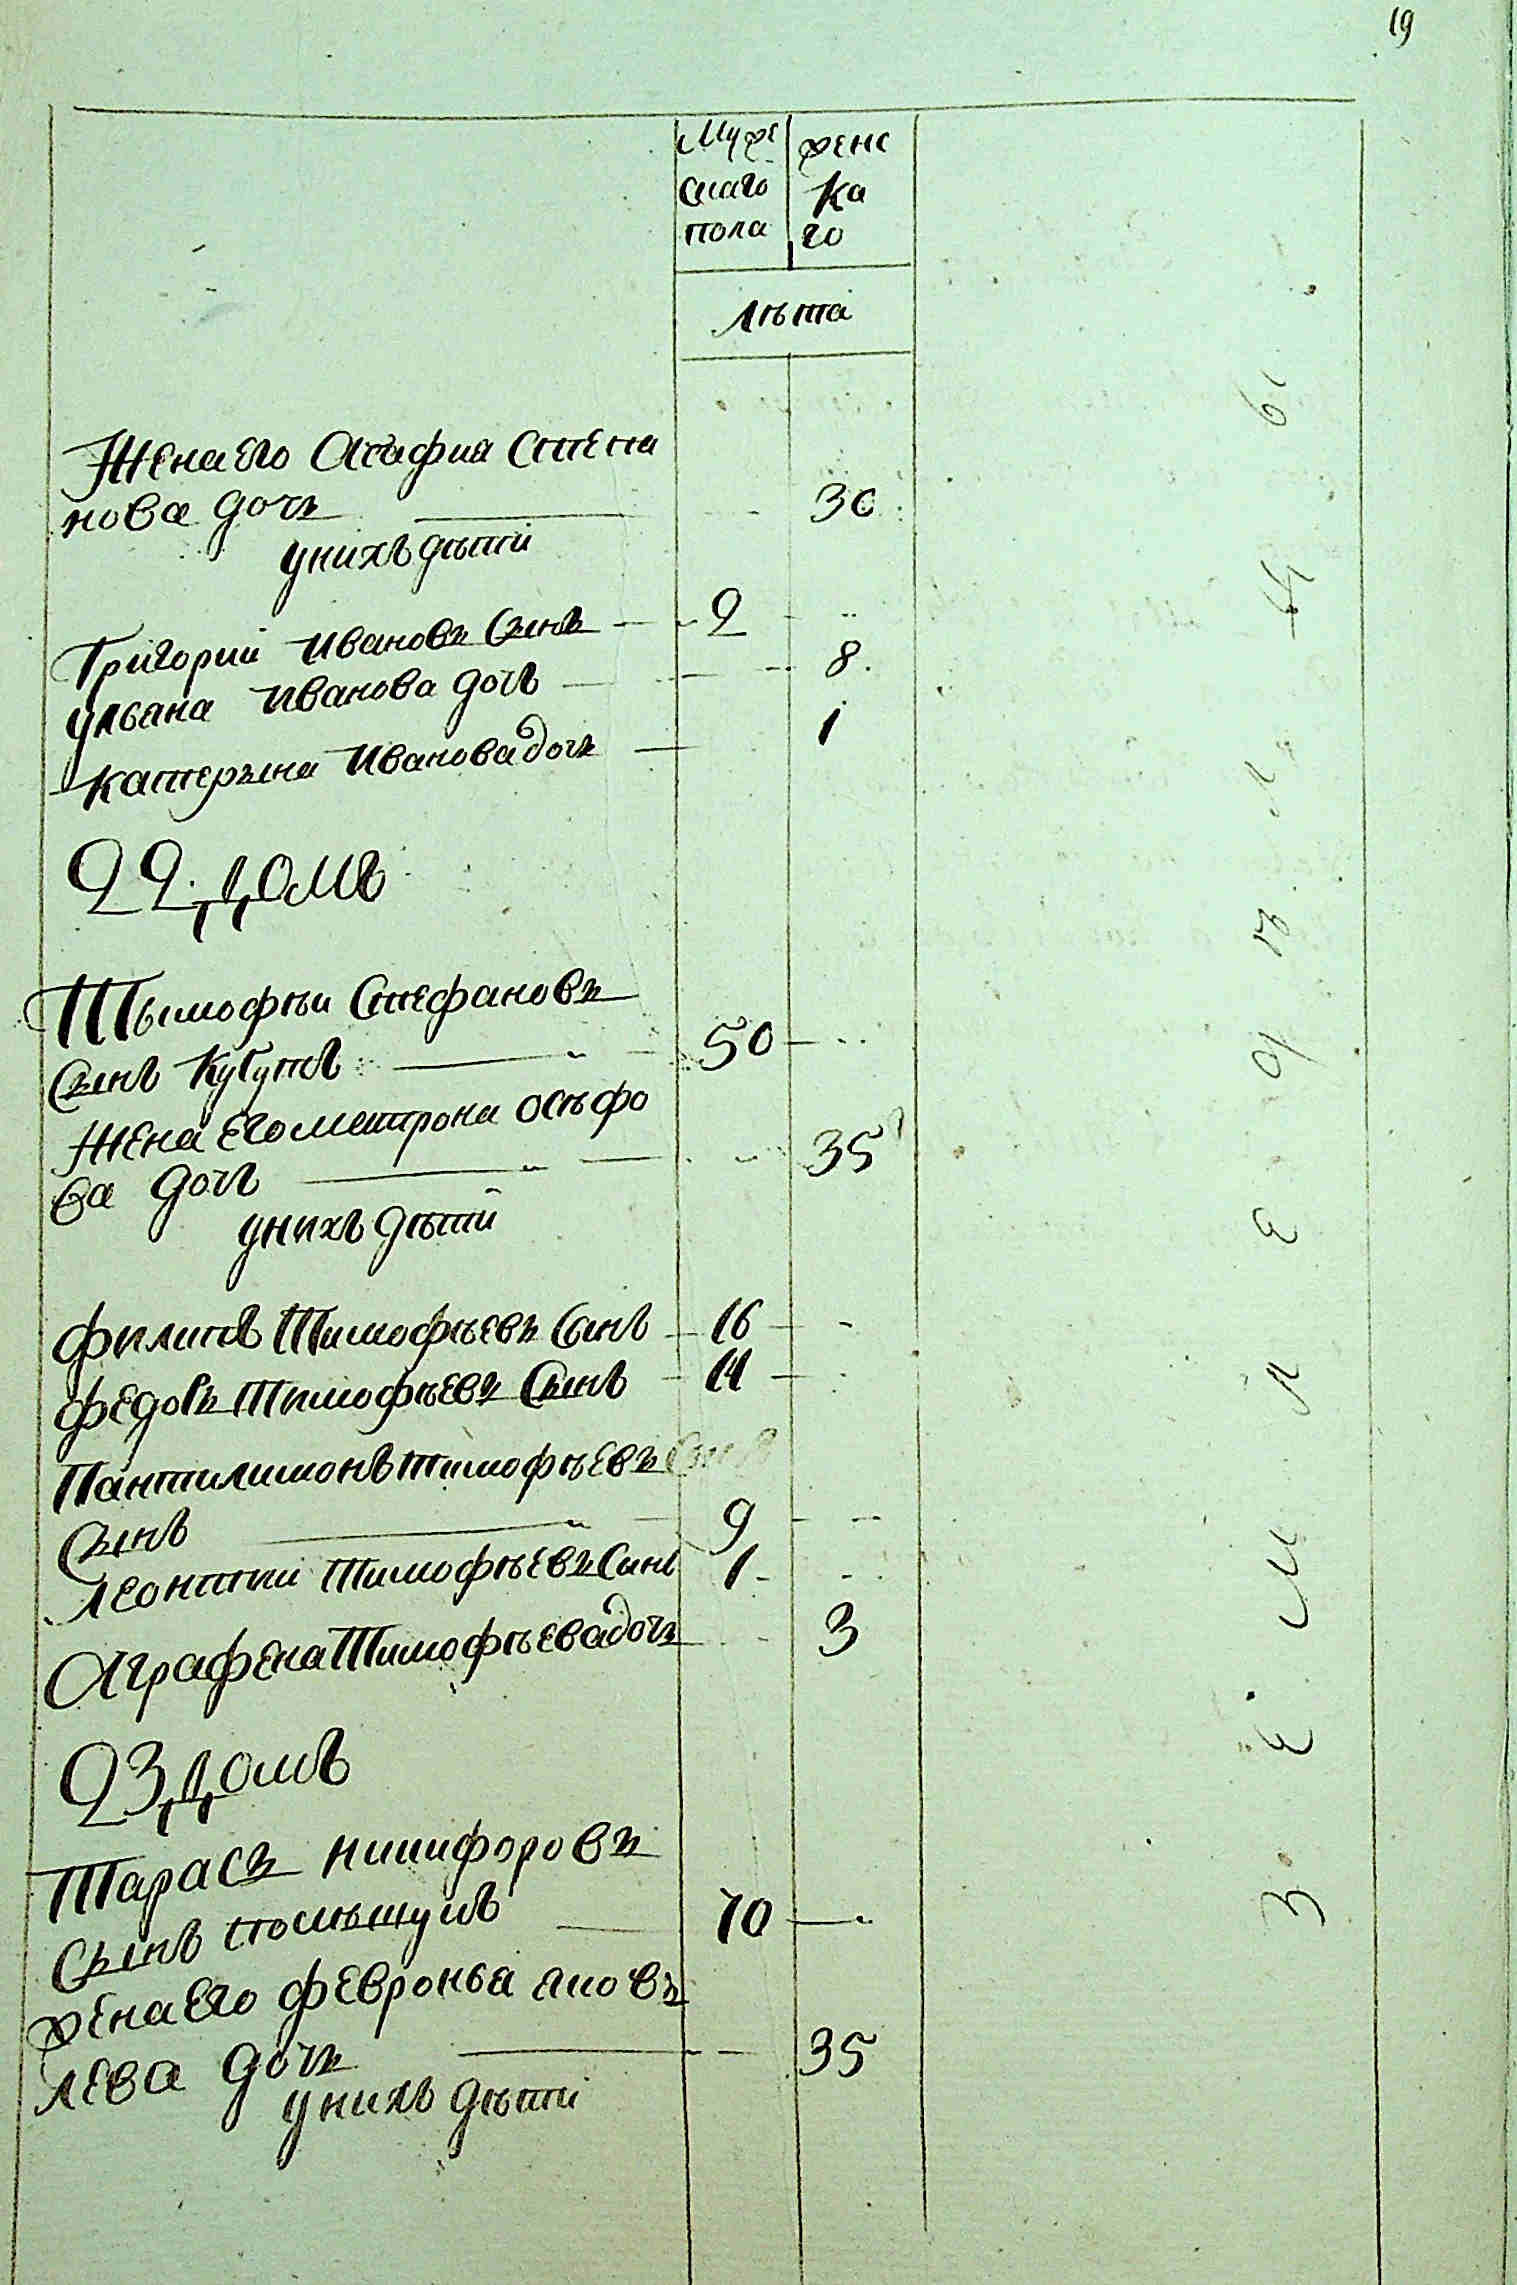 19
Муже женс
скаго ка
пола го
лѣта
Жена его Агафия Степа
нова дочъ 30
у нихъ дѣти
Григорий Ивановъ сынъ 2
Ульана Иванова дочъ 8
Катерына Иванова дочъ 1
22 домъ
Тымофѣи Стефановъ
сынъ 50
Жена его Матрона Осѣфо
ва дочъ 35
у нихъ дѣти
Филипъ Тимофѣевъ сынъ 16
Федоръ Тимофѣевъ сынъ 14
Пантилимонъ Тимофѣевъ сынъ
сынъ 9
Леонтии Тимофѣевъ сынъ 1
Аграфена Тимофѣева дочъ 3
23 домъ
Тарасъ Никифоровъ
сынъ 70
жена его Февронья Яковъ
лева дочъ 35
у нихъ дѣти